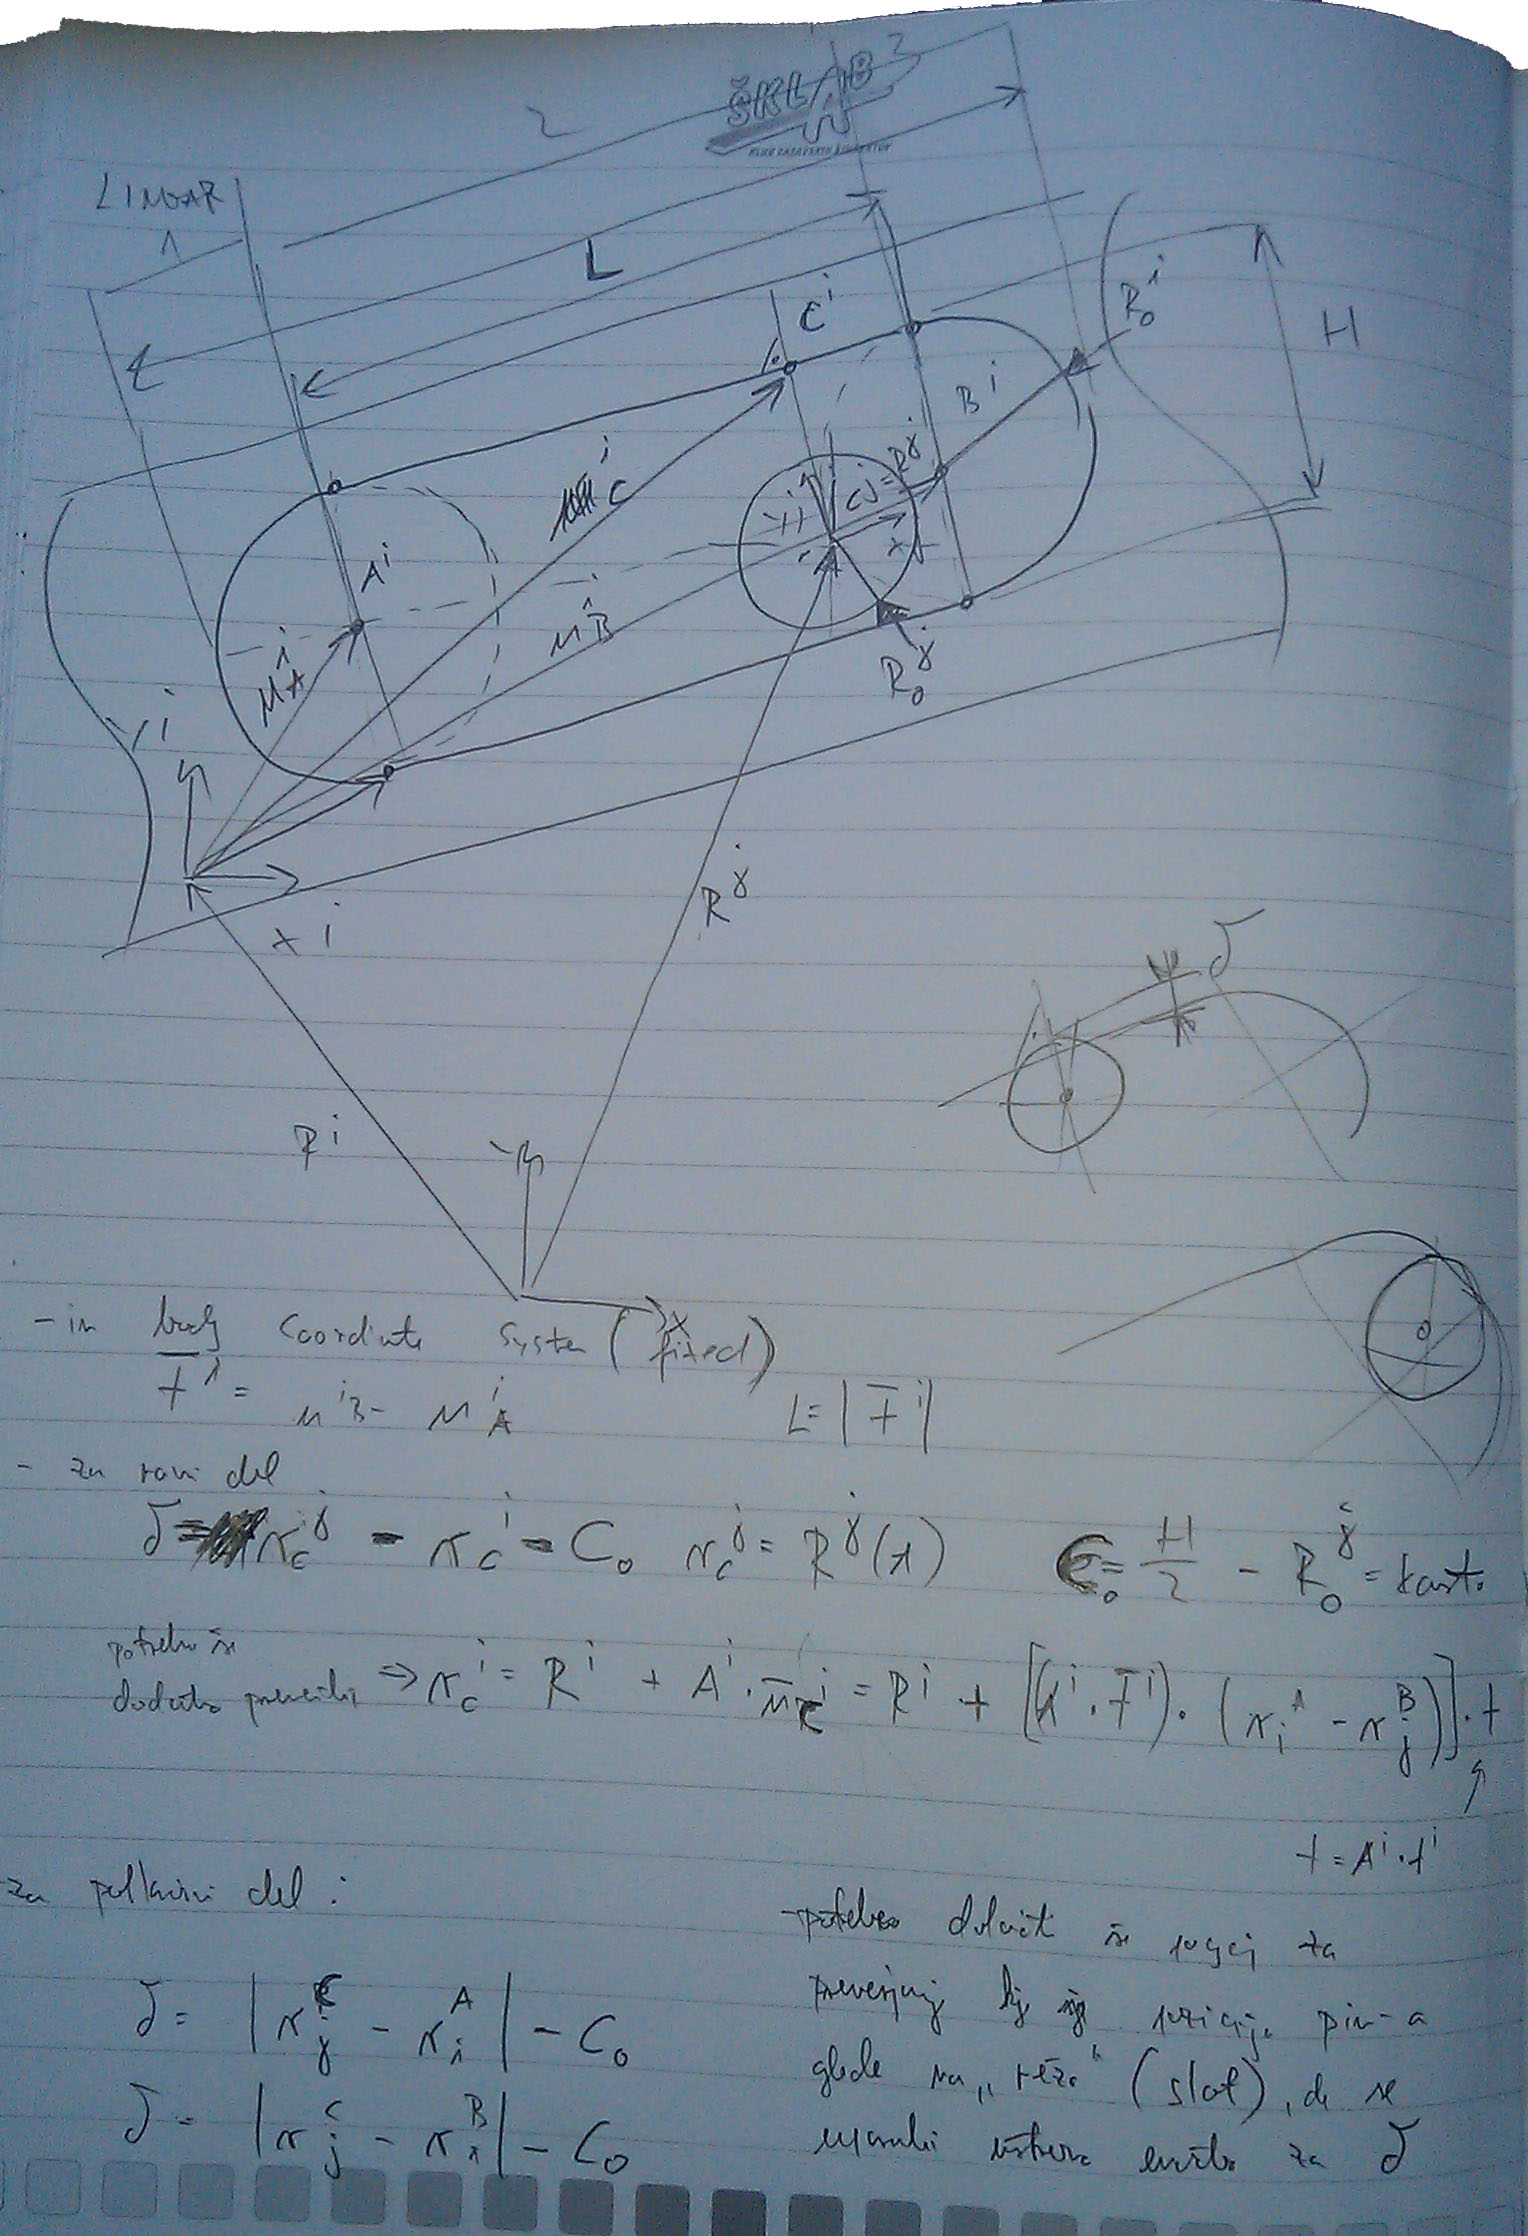 ŠKLAB
2
2
LINEAR
1
L
C^i
R_0^i
H
B^i
u_C^i
Y^j
C^j = R^j
x^j
A^i
u_B^i
u_A^i
R_0^j
Y^i
x^i
R^j
δ
R^i
Y
X
- in body coordinate system (fixed)
t^i = u_B^i - u_A^i L = |t^i|
- za ravni del
δ = r_C^j - r_C^i - C_0 r_C^j = R^j(t) C_0 = H/2 - R_0^j = konst.
potrebno še
dodatno preveriti ⇒ r_C^i = R^i + A^i · u_C^i = R^i + [(A^i · t^i) · (r_i^A - r_j^B)] · t
t = A^i · t^i
za polkrožni del :
δ = |r_j^C - r_i^A| - C_0
δ = |r_j^C - r_i^B| - C_0
- potrebno določiti še pogoj za
preverjanje kje je pozicija pin-a
glede na „režo“ (slot), da se
uporabi ustrezna enačba za δ